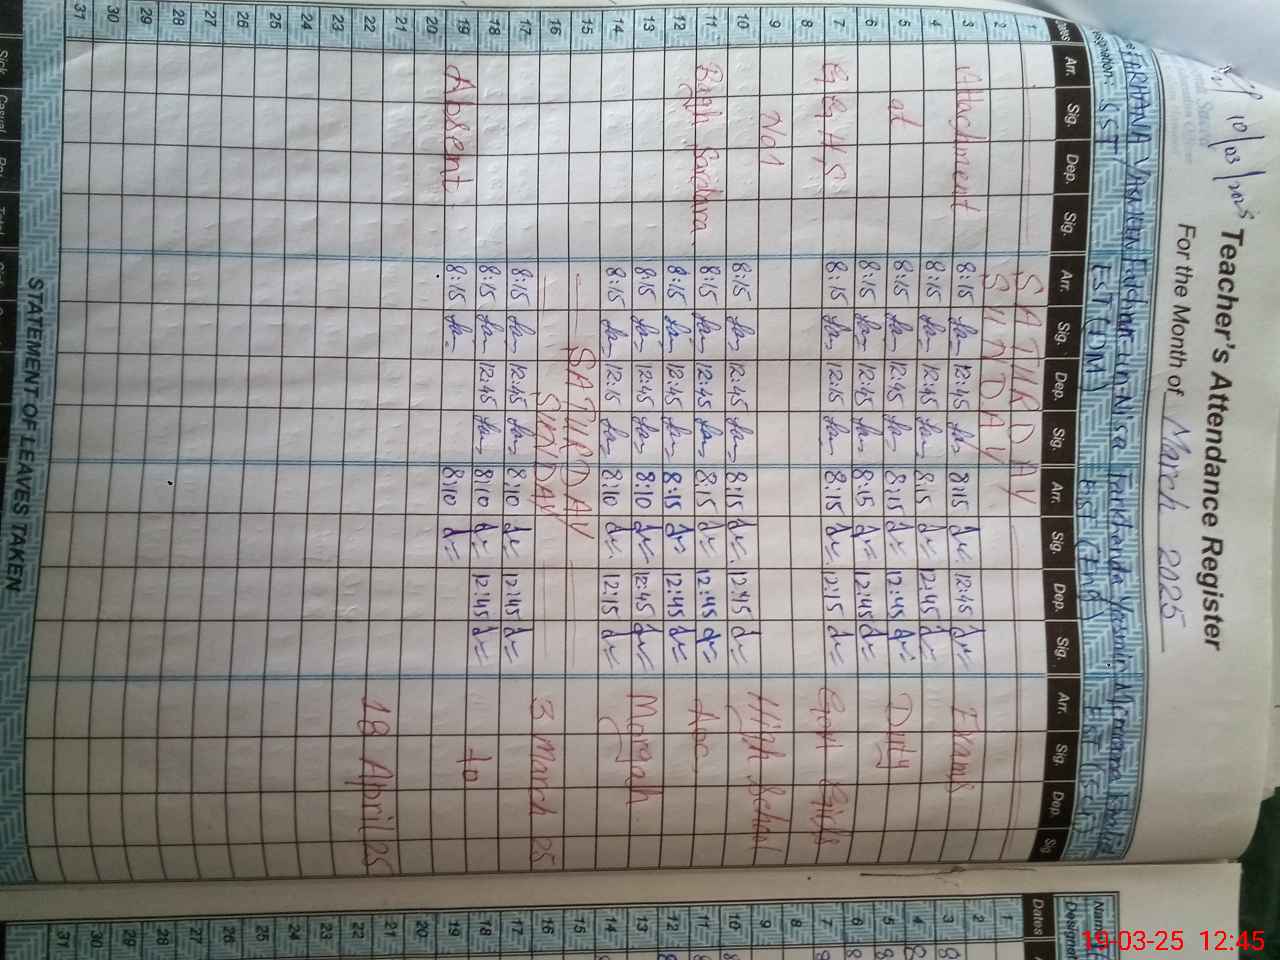 10/03/2025
Teacher's Attendance Register
For the Month of March 2025
FARHANA Fakhar-un-Nisa Farkhanda Yasmin Memoona
SST EST (DM) EST (Eng)
Dates Arr. Sig. Dep. Sig. Arr. Sig. Dep. Sig. Arr. Sig. Dep. Sig. Arr. Sig. Dep. Sig.
1 SATURDAY
2 SUNDAY
3 Attachment 8:15 12:45 8:15 12:45 Exams
4 8:15 12:45 8:15 12:45
5 at 8:15 12:45 8:15 12:45 Duty
6 8:15 12:45 8:15 12:45
7 GGHS 8:15 12:15 8:15 12:15 Govt Girls
8
9 No1 High School
10 8:15 12:45 8:15 12:45
11 Bagh Sardara 8:15 12:45 8:15 12:45 Aoc
12 8:15 12:45 8:15 12:45
13 8:15 12:45 8:10 12:45 Morgah
14 8:15 12:15 8:10 12:15
15 SATURDAY
16 SUNDAY 3 March 25
17 8:15 12:45 8:10 12:45
18 8:15 12:45 8:10 12:45 to
19 Absent 8:15 8:10
20
21 18 April 25
22
23
24
25
26
27
28
29
30
31
STATEMENT OF LEAVES TAKEN
Sick Casual Total
Name
Dates
1
2
3
4
5
6
7
8
9
10
11
12
13
14
15
16
17
18
19
20
21
22
23
24
25
26
27
28
29
30
31
19-03-25 12:45